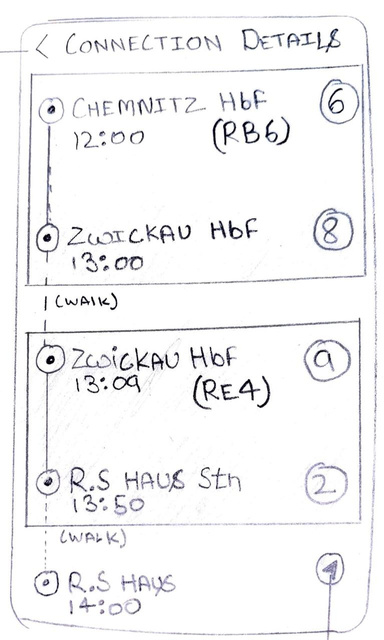 < CONNECTION DETAILS
CHEMNITZ HbF 6
12:00 (RB6)
ZWICKAU HbF 8
13:00
(WALK)
ZWiCKAU HbF 9
13:09 (RE4)
R.S HAUS Stn 2
13:50
(WALK)
R.S HAUS
14:00